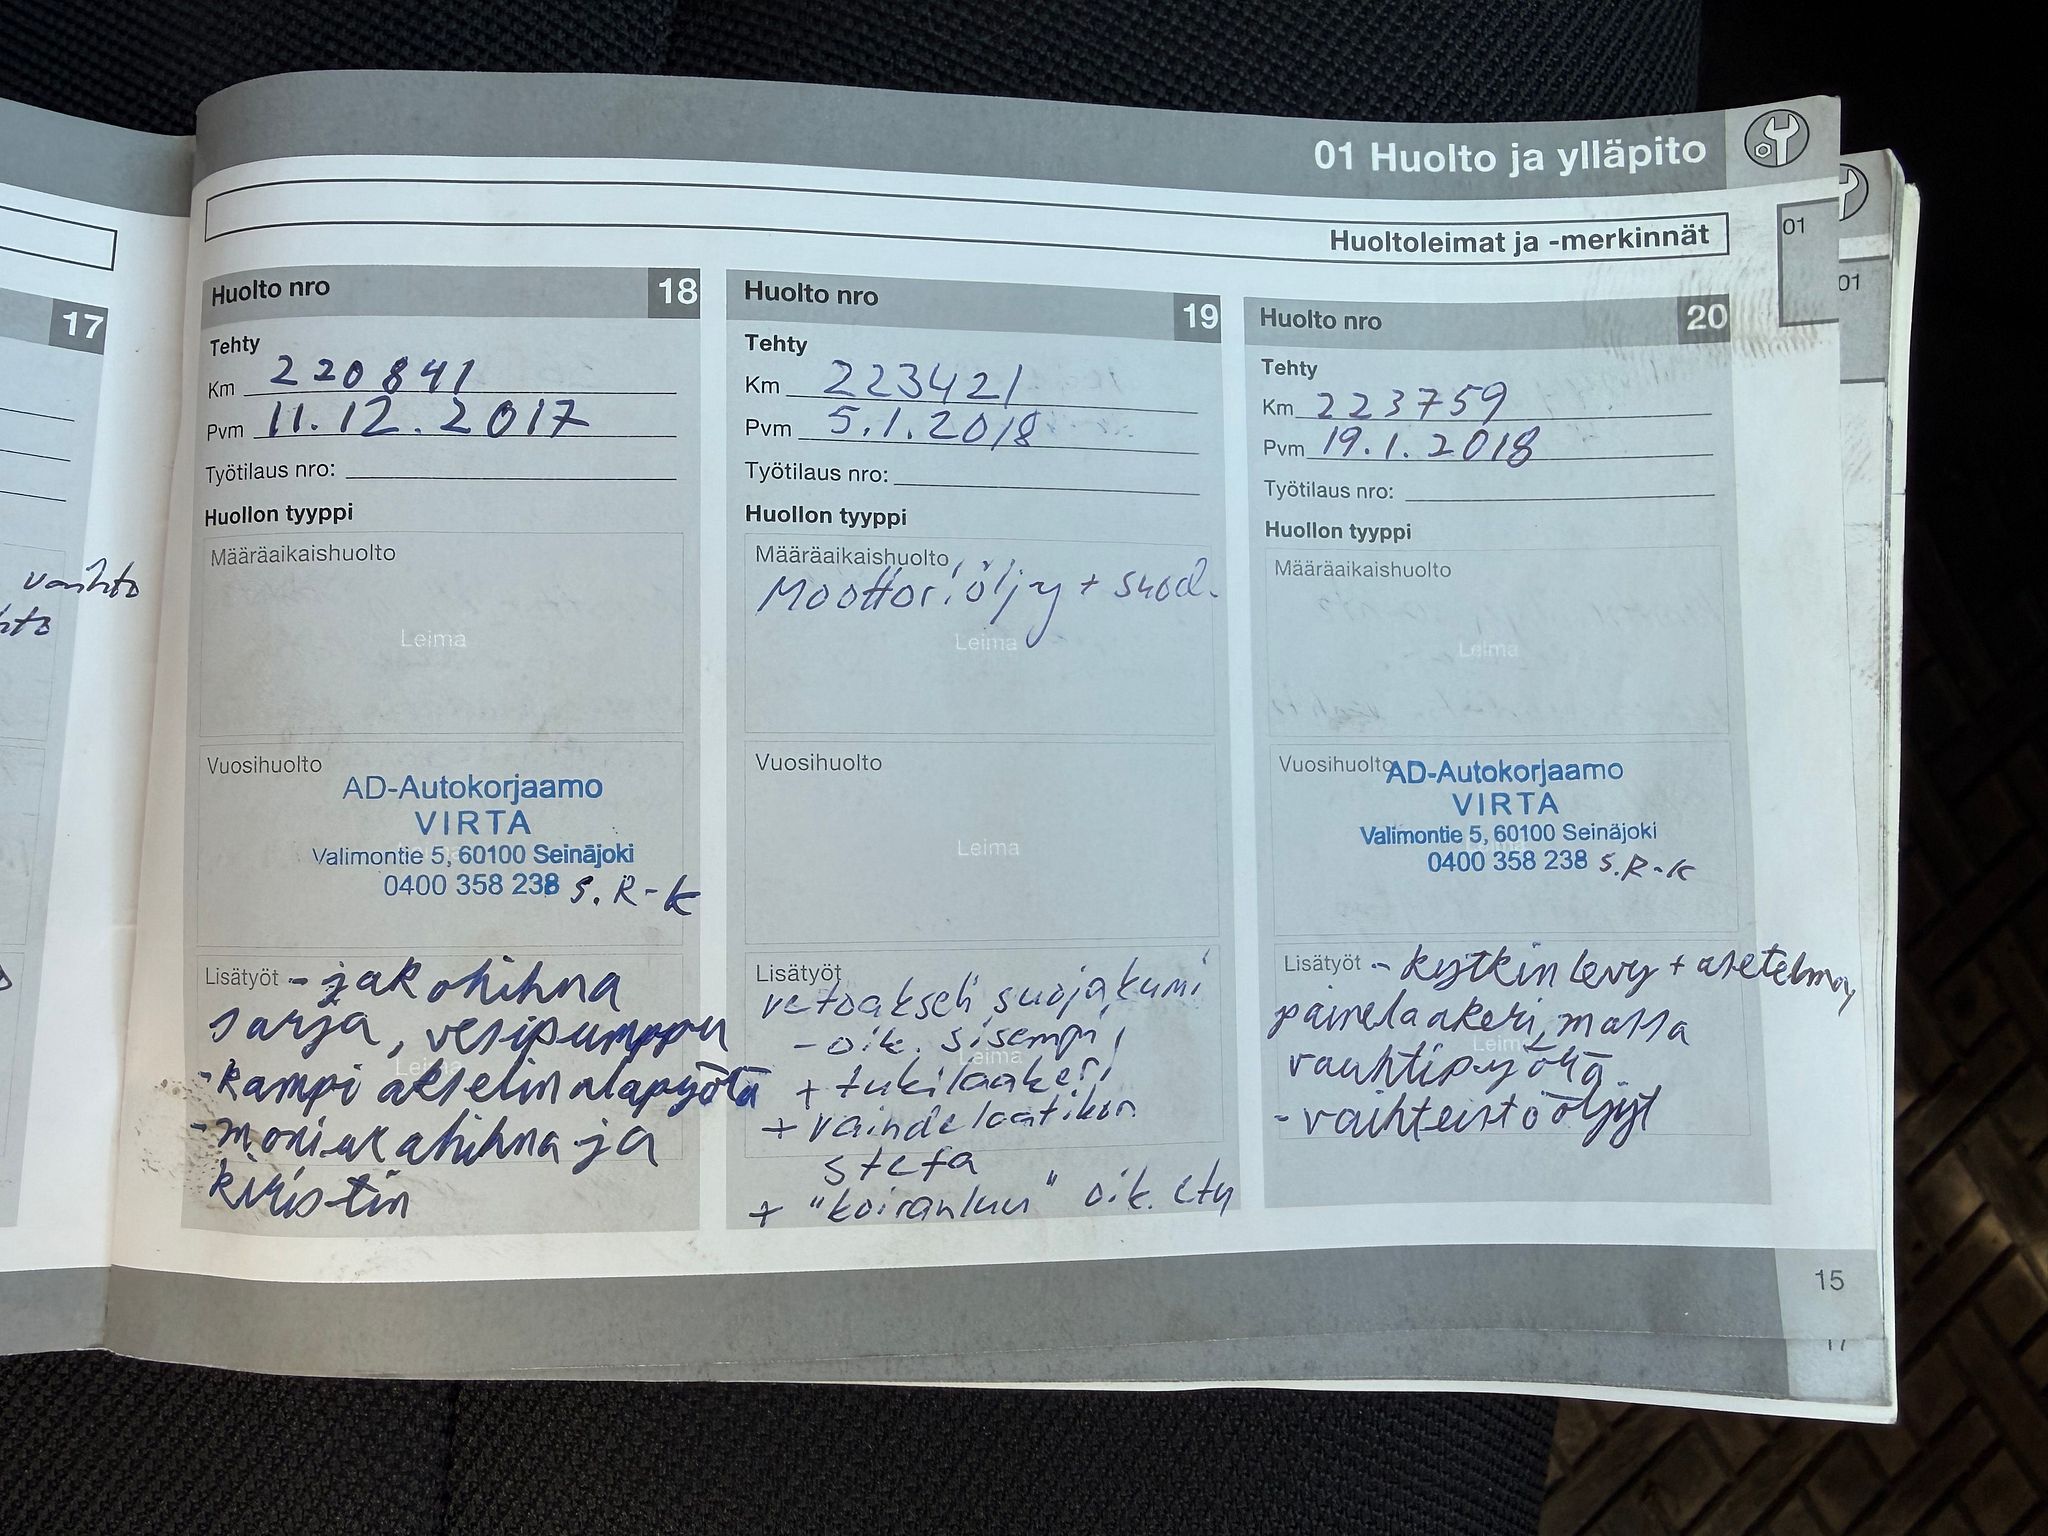 01 Huolto ja ylläpito
Huoltoleimat ja -merkinnät
01
01
17
vaihto
Huolto nro 18
Tehty
Km 220841
Pvm 11.12.2017
Työtilaus nro:
Huollon tyyppi
Määräaikaishuolto
Leima
Vuosihuolto
AD-Autokorjaamo
VIRTA
Valimontie 5, 60100 Seinäjoki
0400 358 238 S.R-K
Lisätyöt - jakohihna
sarja, vesipumppu
- kampiakselin alapyörä
- moniurahihna ja
kiristin
Huolto nro 19
Tehty
Km 223421
Pvm 5.1.2018
Työtilaus nro:
Huollon tyyppi
Määräaikaishuolto
Moottoriöljy + suod.
Leima
Vuosihuolto
Leima
Lisätyöt
vetoakseli suojakumi
- oik. sisempi
Leima
+ tukilaakeri
+ vaihdelaatikon
stefa
+ "koiranluu" oik. etu
Huolto nro 20
Tehty
Km 223759
Pvm 19.1.2018
Työtilaus nro:
Huollon tyyppi
Määräaikaishuolto
Leima
Vuosihuolto
AD-Autokorjaamo
VIRTA
Valimontie 5, 60100 Seinäjoki
0400 358 238 S.R-K
Lisätyöt - kytkin levy + asetelma,
painelaakeri, massa
vauhtipyörä
- vaihteistoöljyt
15
17